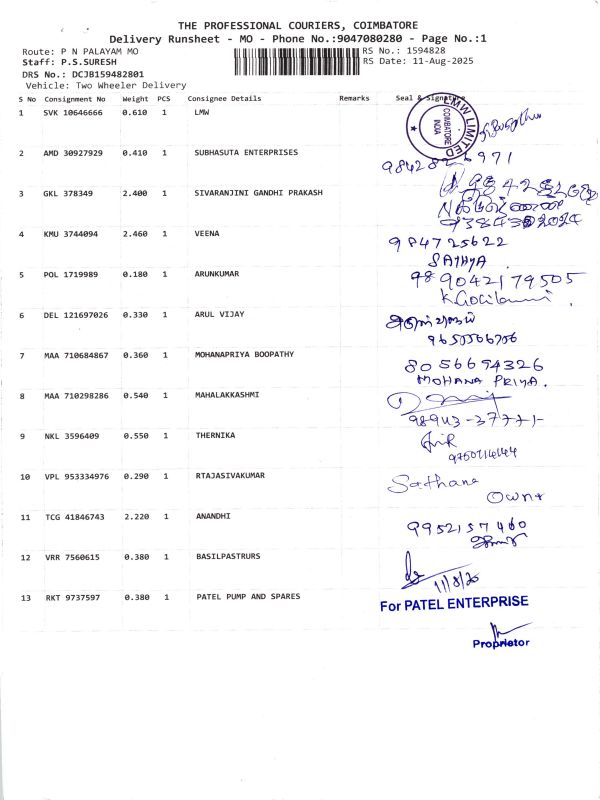 THE PROFESSIONAL COURIERS, COIMBATORE
Delivery Runsheet - MO - Phone No.:9047080280 - Page No.:1
Route: P N PALAYAM MO RS No.: 1594828
Staff: P.S.SURESH RS Date: 11-Aug-2025
DRS No.: DCJB159482801
Vehicle: Two Wheeler Delivery
S No Consignment No Weight PCS Consignee Details Remarks Seal & Signature
1 SVK 10646666 0.610 1 LMW
LMW LIMITED COIMBATORE INDIA
2 AMD 30927929 0.410 1 SUBHASUTA ENTERPRISES
3 GKL 378349 2.400 1 SIVARANJINI GANDHI PRAKASH
4 KMU 3744094 2.460 1 VEENA
984725622
SATHYA
5 POL 1719989 0.180 1 ARUNKUMAR
9042179505
6 DEL 121697026 0.330 1 ARUL VIJAY
அருள் விஜய்
9650566706
7 MAA 710684867 0.360 1 MOHANAPRIYA BOOPATHY
8056694326
MOHANA PRIYA.
8 MAA 710298286 0.540 1 MAHALAKKASHMI
98943-37771
9 NKL 3596409 0.550 1 THERNIKA
10 VPL 953334976 0.290 1 RTAJASIVAKUMAR
Sathana
11 TCG 41846743 2.220 1 ANANDHI
9952157460
12 VRR 7560615 0.380 1 BASILPASTRURS
11/8/20
13 RKT 9737597 0.380 1 PATEL PUMP AND SPARES
For PATEL ENTERPRISE
Proprietor